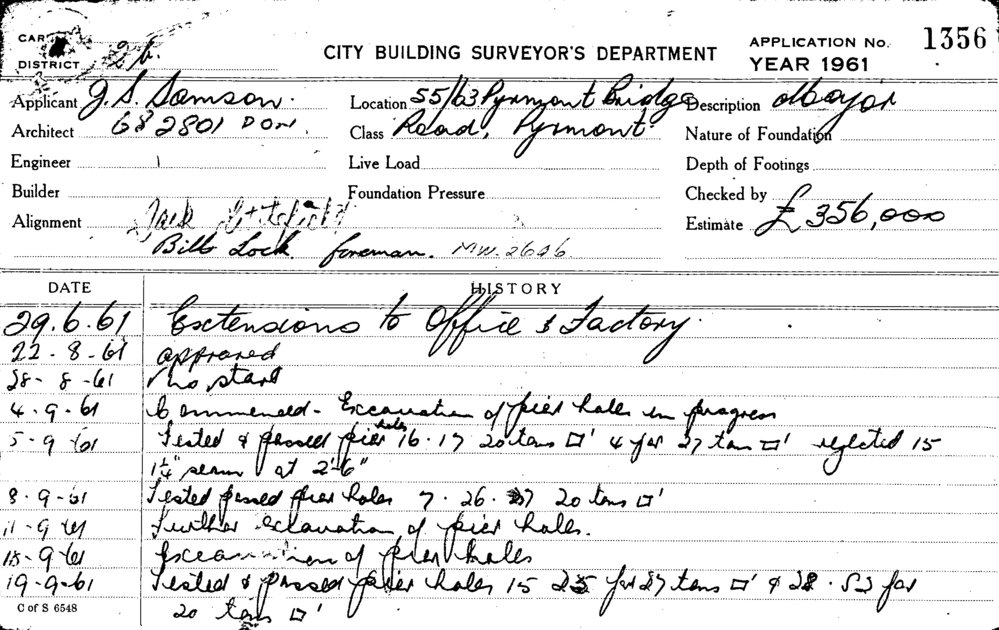 CITY BUILDING SURVEYOR'S DEPARTMENT
APPLICATION No. 1356
YEAR 1961
DISTRICT 26.
Applicant J. S. Samson.
Location 55/63 Pyrmont Bridge
Description
Architect 68 2801 DON.
Class Road, Pyrmont.
Nature of Foundation
Engineer
Live Load
Depth of Footings
Builder
Foundation Pressure
Checked by
Alignment Jack
Estimate £ 356,000
Bill Lock foreman. MW. 2626
DATE HISTORY
29.6.61 Extensions to Office & Factory.
22-8-61 approved
28-8-61 No start
4-9-61 Commenced - Excavation of pier holes in progress
5-9-61 Tested & passed pier holes 16.17 20 tons □' 4 for 27 tons □' rejected 15
1¼" seam at 2'6"
8-9-61 Tested passed pier holes 7.26. 20 tons □'
11-9-61 Further excavation of pier holes.
18-9-61 Excavation of pier holes
19-9-61 Tested & passed pier holes 15 25 for 27 tons □' & 28.53 for
20 tons □'
C of S 6548